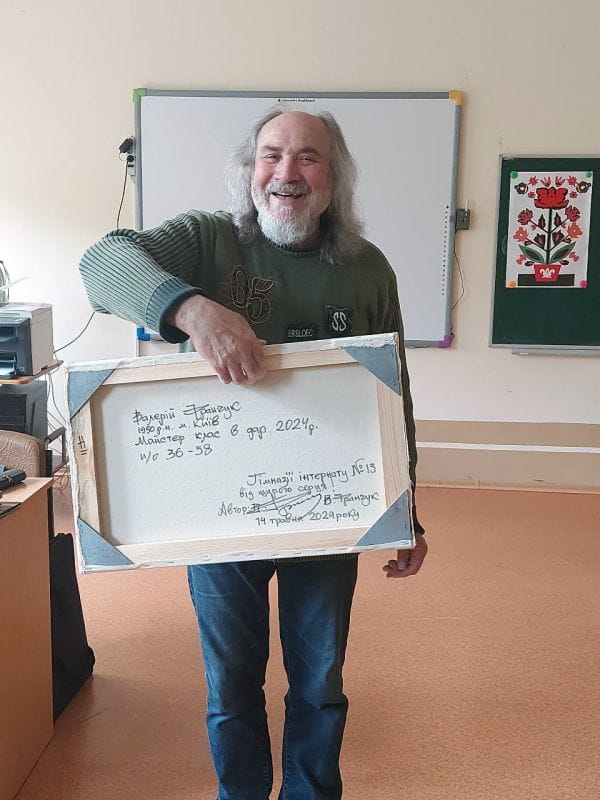 85
ERSLOEC
SS
Валерій Франчук
1950 р.н. м. Київ
Майстер клас в 2024р.
п/о 36-58
Гімназії інтернату №13
від щирого серця!
Автор В. Франчук
14 травня 2024 року